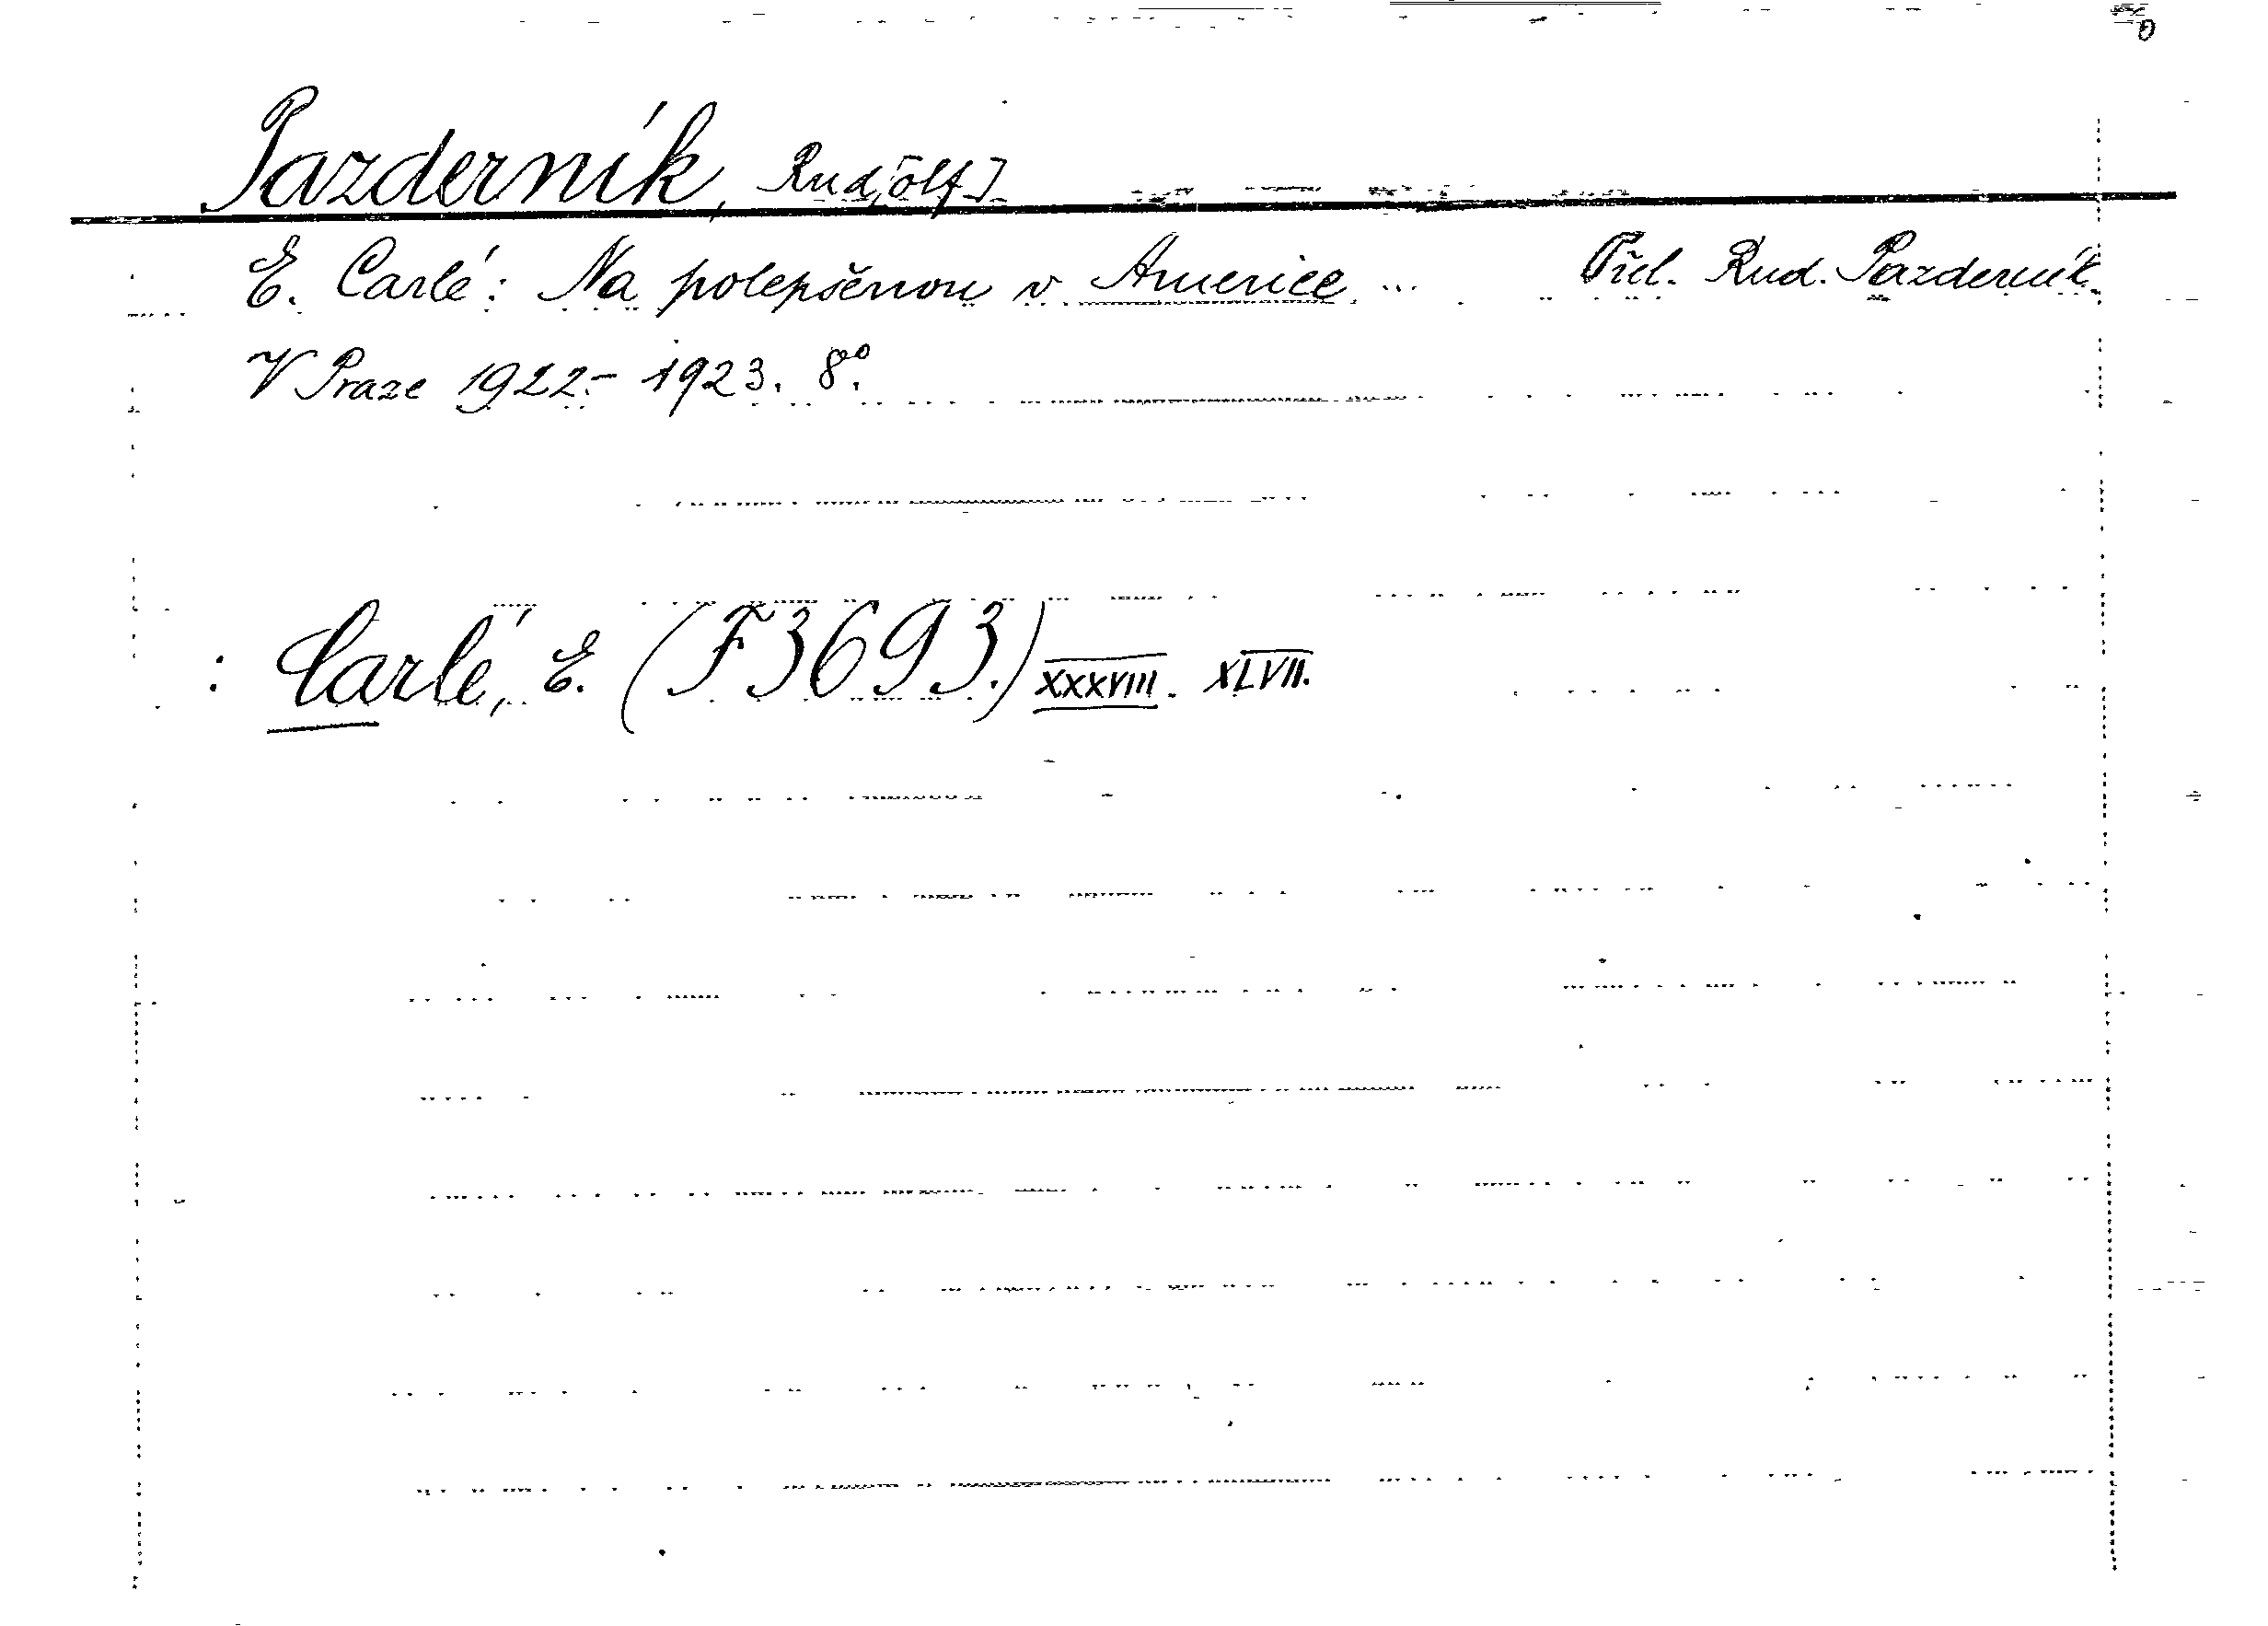 Pazderník, Rud[olf]
E. Carlé: Na polepšenou v Americe ... Přel. Rud. Pazderník.
V Praze 1922.- 1923. 8°.
: Carlé, E. (F 3693.) XXXVIII. XLVII.